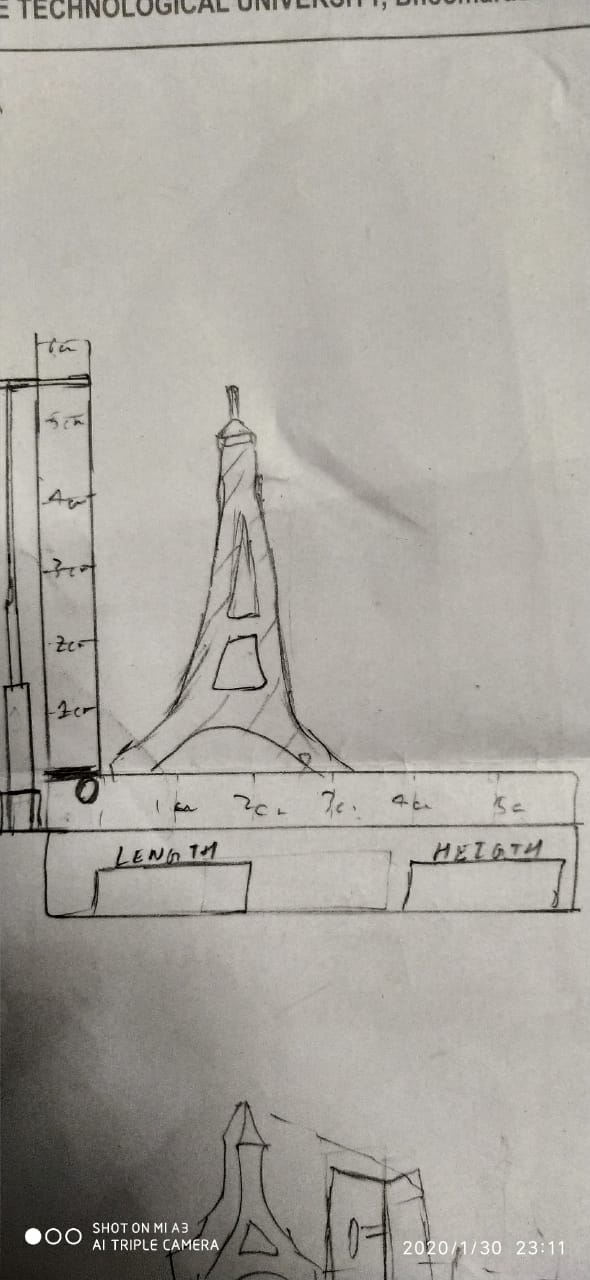 TECHNOLOGICAL UNIVERSITY,
6cm
5cm
4cm
3cm
2cm
1cm
0
1cm 2cm 3c. 4cm 5c
LENGTH HEIGTH
SHOT ON MI A3
AI TRIPLE CAMERA
2020/1/30 23:11